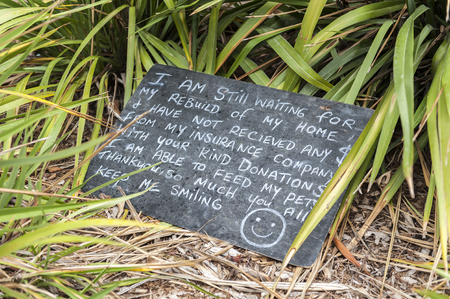 I AM STiLL WAITING FOR
MY REBUILD OF MY HOME
& HAVE NOT RECIEVED ANY $
FROM MY INSURANCE COMPANY
WITH YOUR KIND DONATIONS
I AM ABLE TO FEED MY PETS
THANKYOU SO MUCH YOU ALL
KEEP ME SMILING